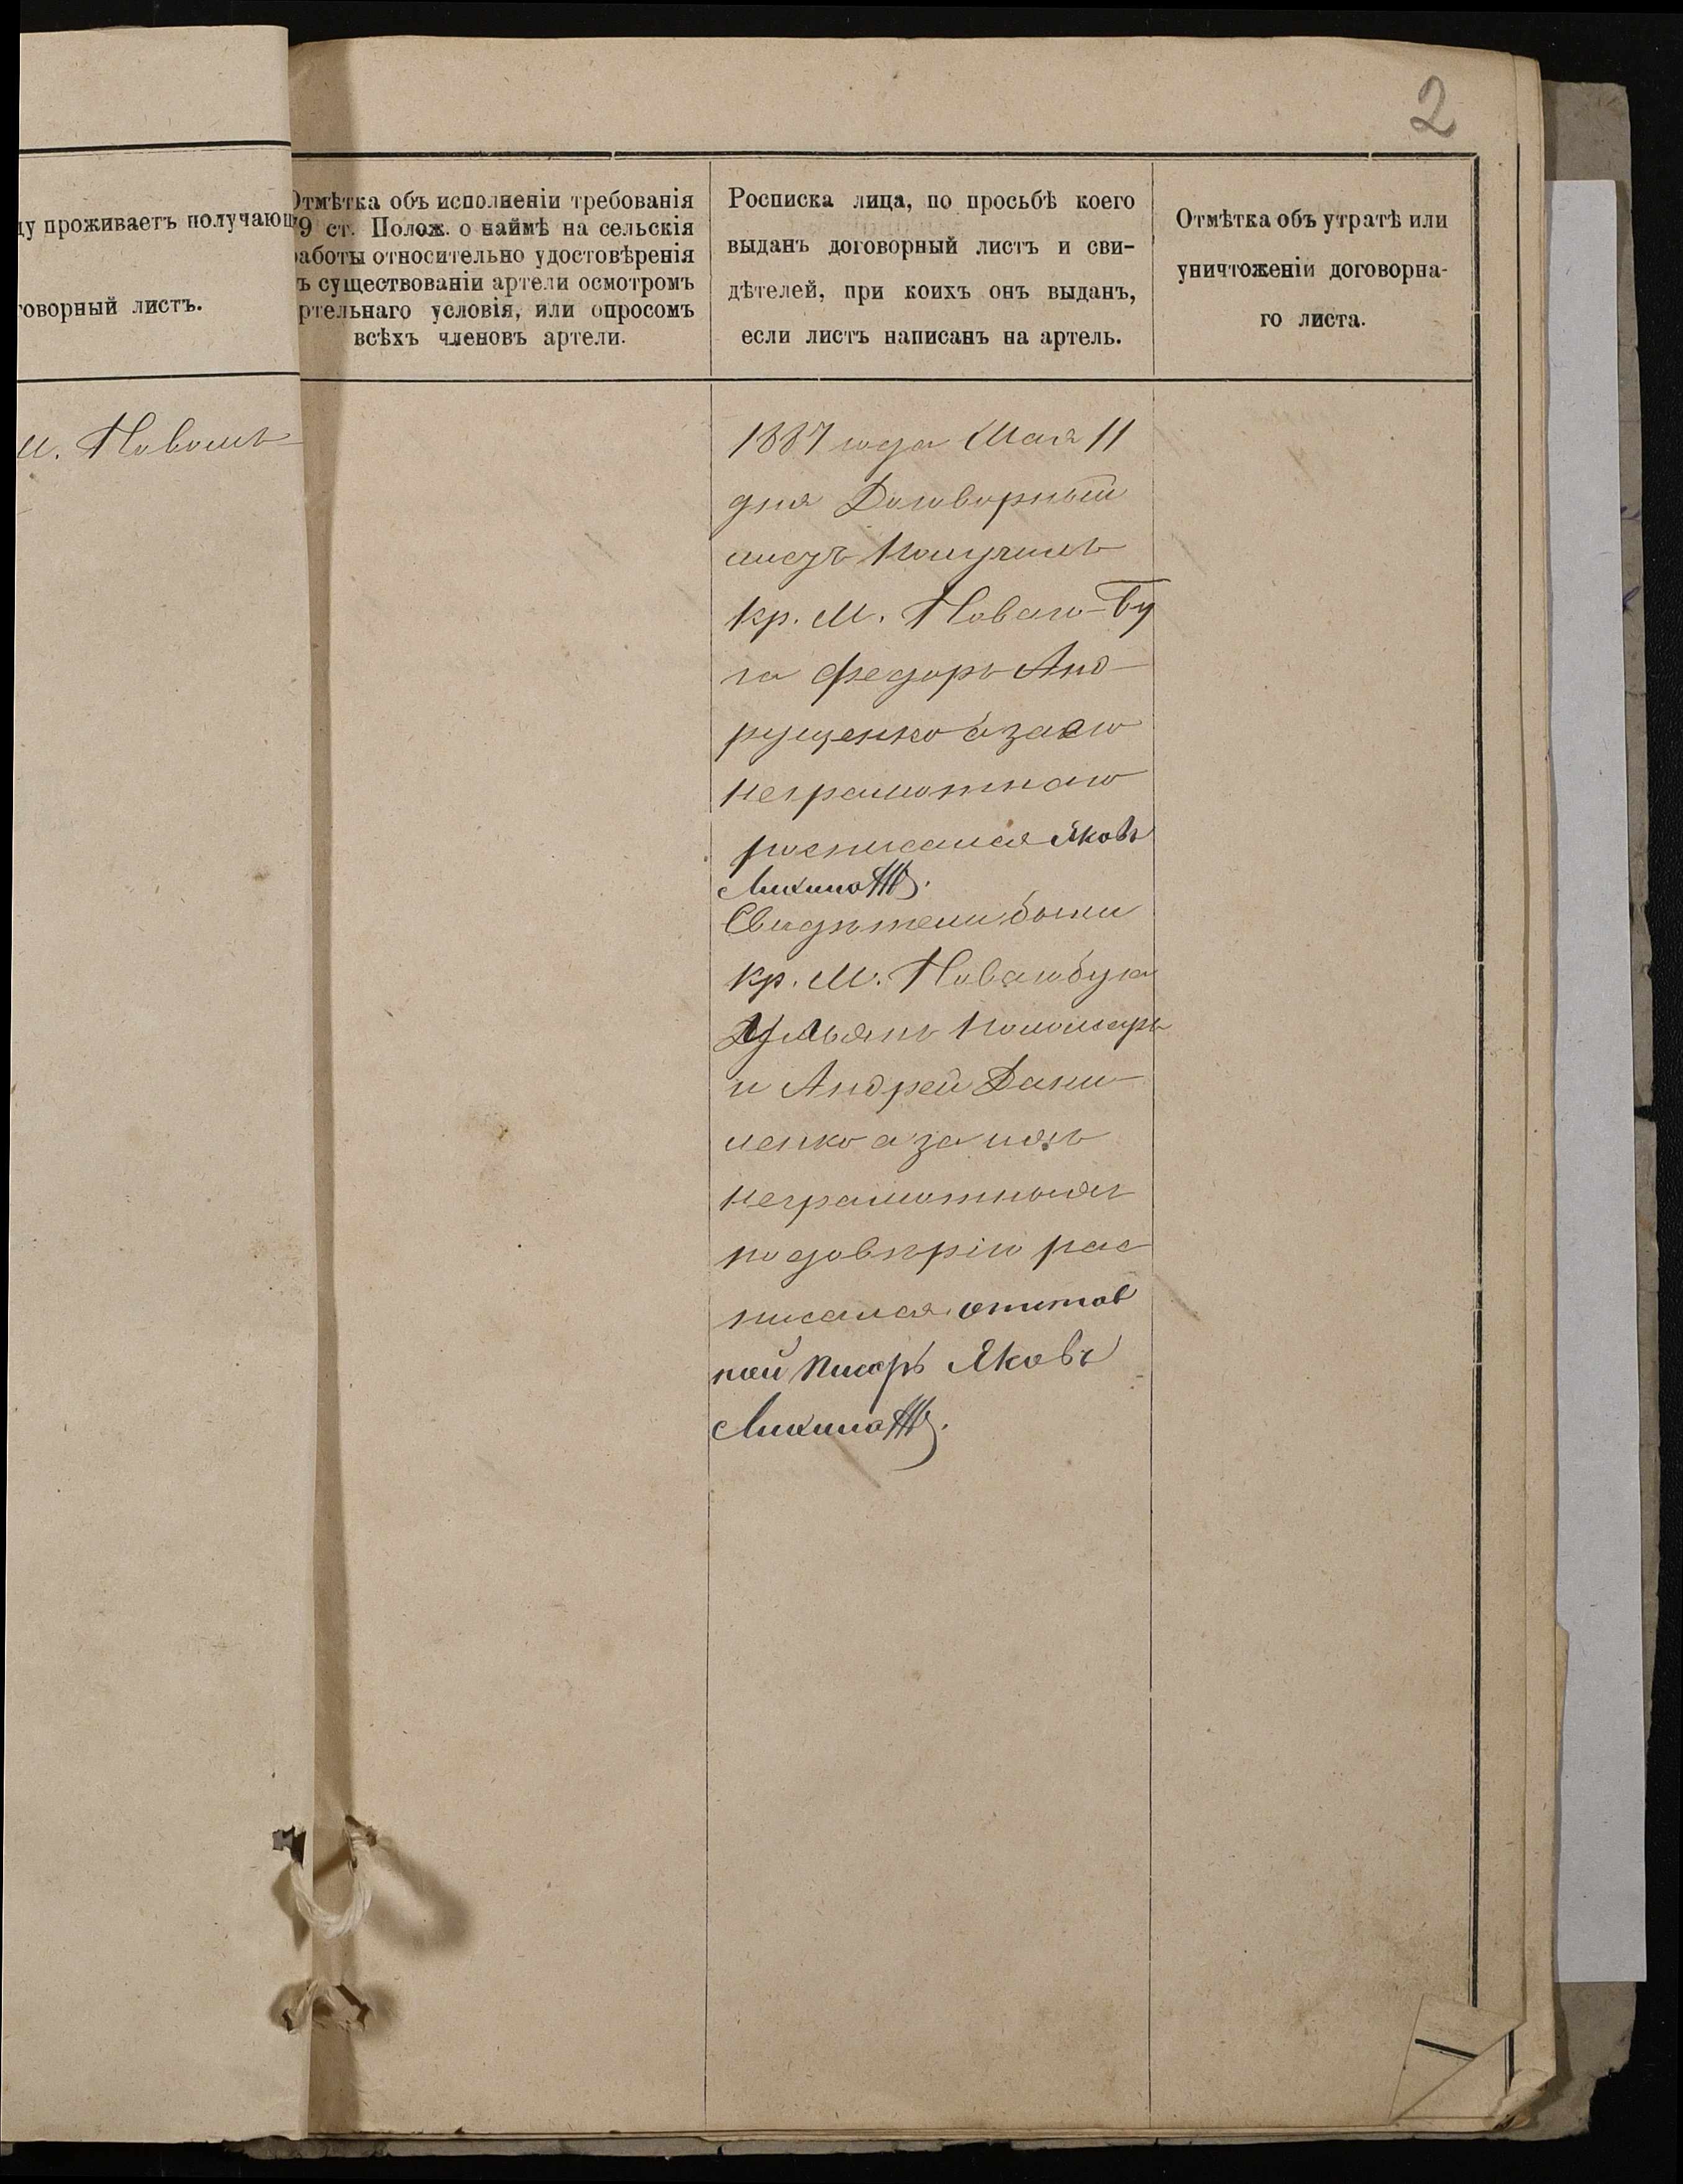 2
ду проживаетъ получающ
говорный листъ.
м. Новомъ
Отмѣтка объ исполненіи требованія
79 ст. Полож. о наймѣ на сельскія
работы относительно удостовѣренія
ъ существованіи артели осмотромъ
ртельнаго условія, или опросомъ
всѣхъ членовъ артели.
Росписка лица, по просьбѣ коего
выданъ договорный листъ и сви-
дѣтелей, при коихъ онъ выданъ,
если листъ написанъ на артель.
Отмѣтка объ утратѣ или
уничтоженіи договорна-
го листа.
1887 года Мая 11
дня Договорный
листъ Получилъ
кр. М. Новаго-Бу
га Федоръ Анд
рущенко а за его
неграмотнаго
росписался Яковъ
Свидѣтели были
кр. М. Новагобуга
Ульянъ Пономарь
и Андрей Дани
ленко а за ихъ
неграмотныхъ
по довѣрію рас
писался
ной Писарь Яковъ